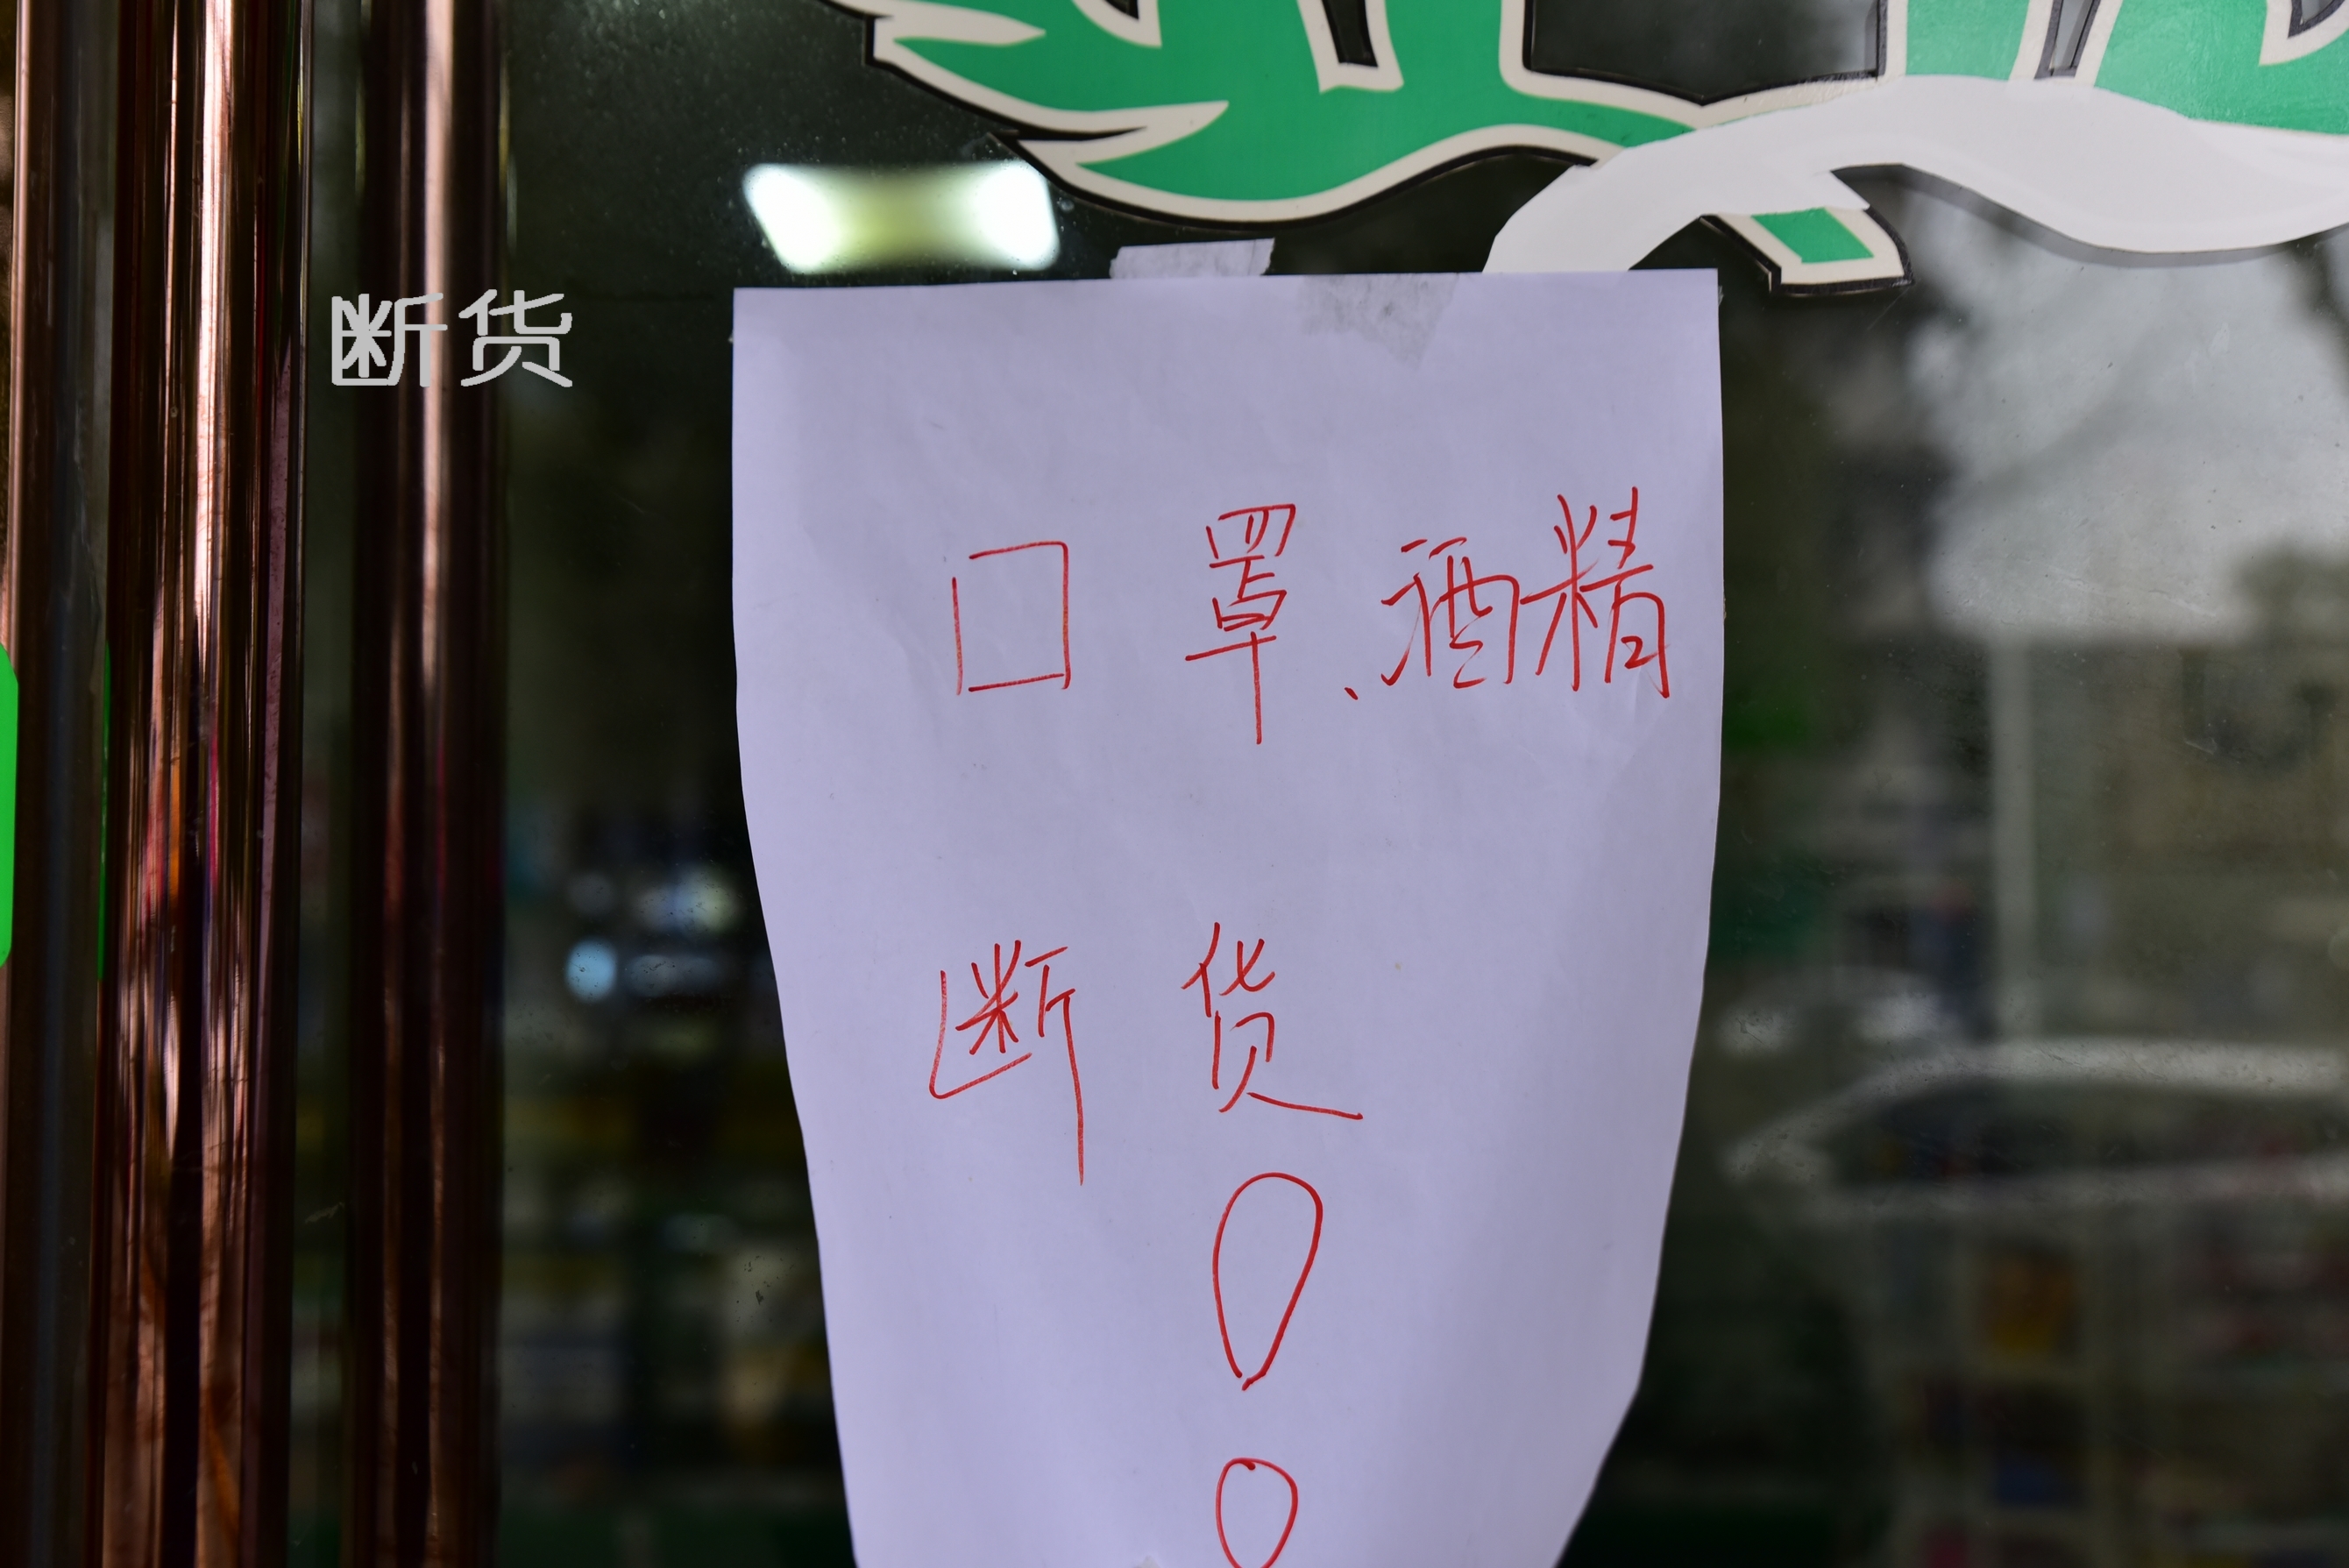 断货
口罩、酒精
断货！